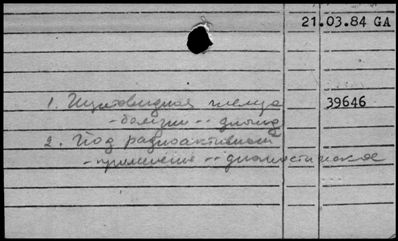 21.03.84 GA
1. Щитовидная железа 39646
- болезни -- диагноз
2. Йод радиоактивный
- применение -- диагностическое